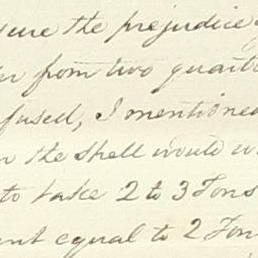 sure the prejudice
from two quart
fusell, I mentioned
the shell would w
to take 2 to 3 Tons
ent equal to 2 Ton